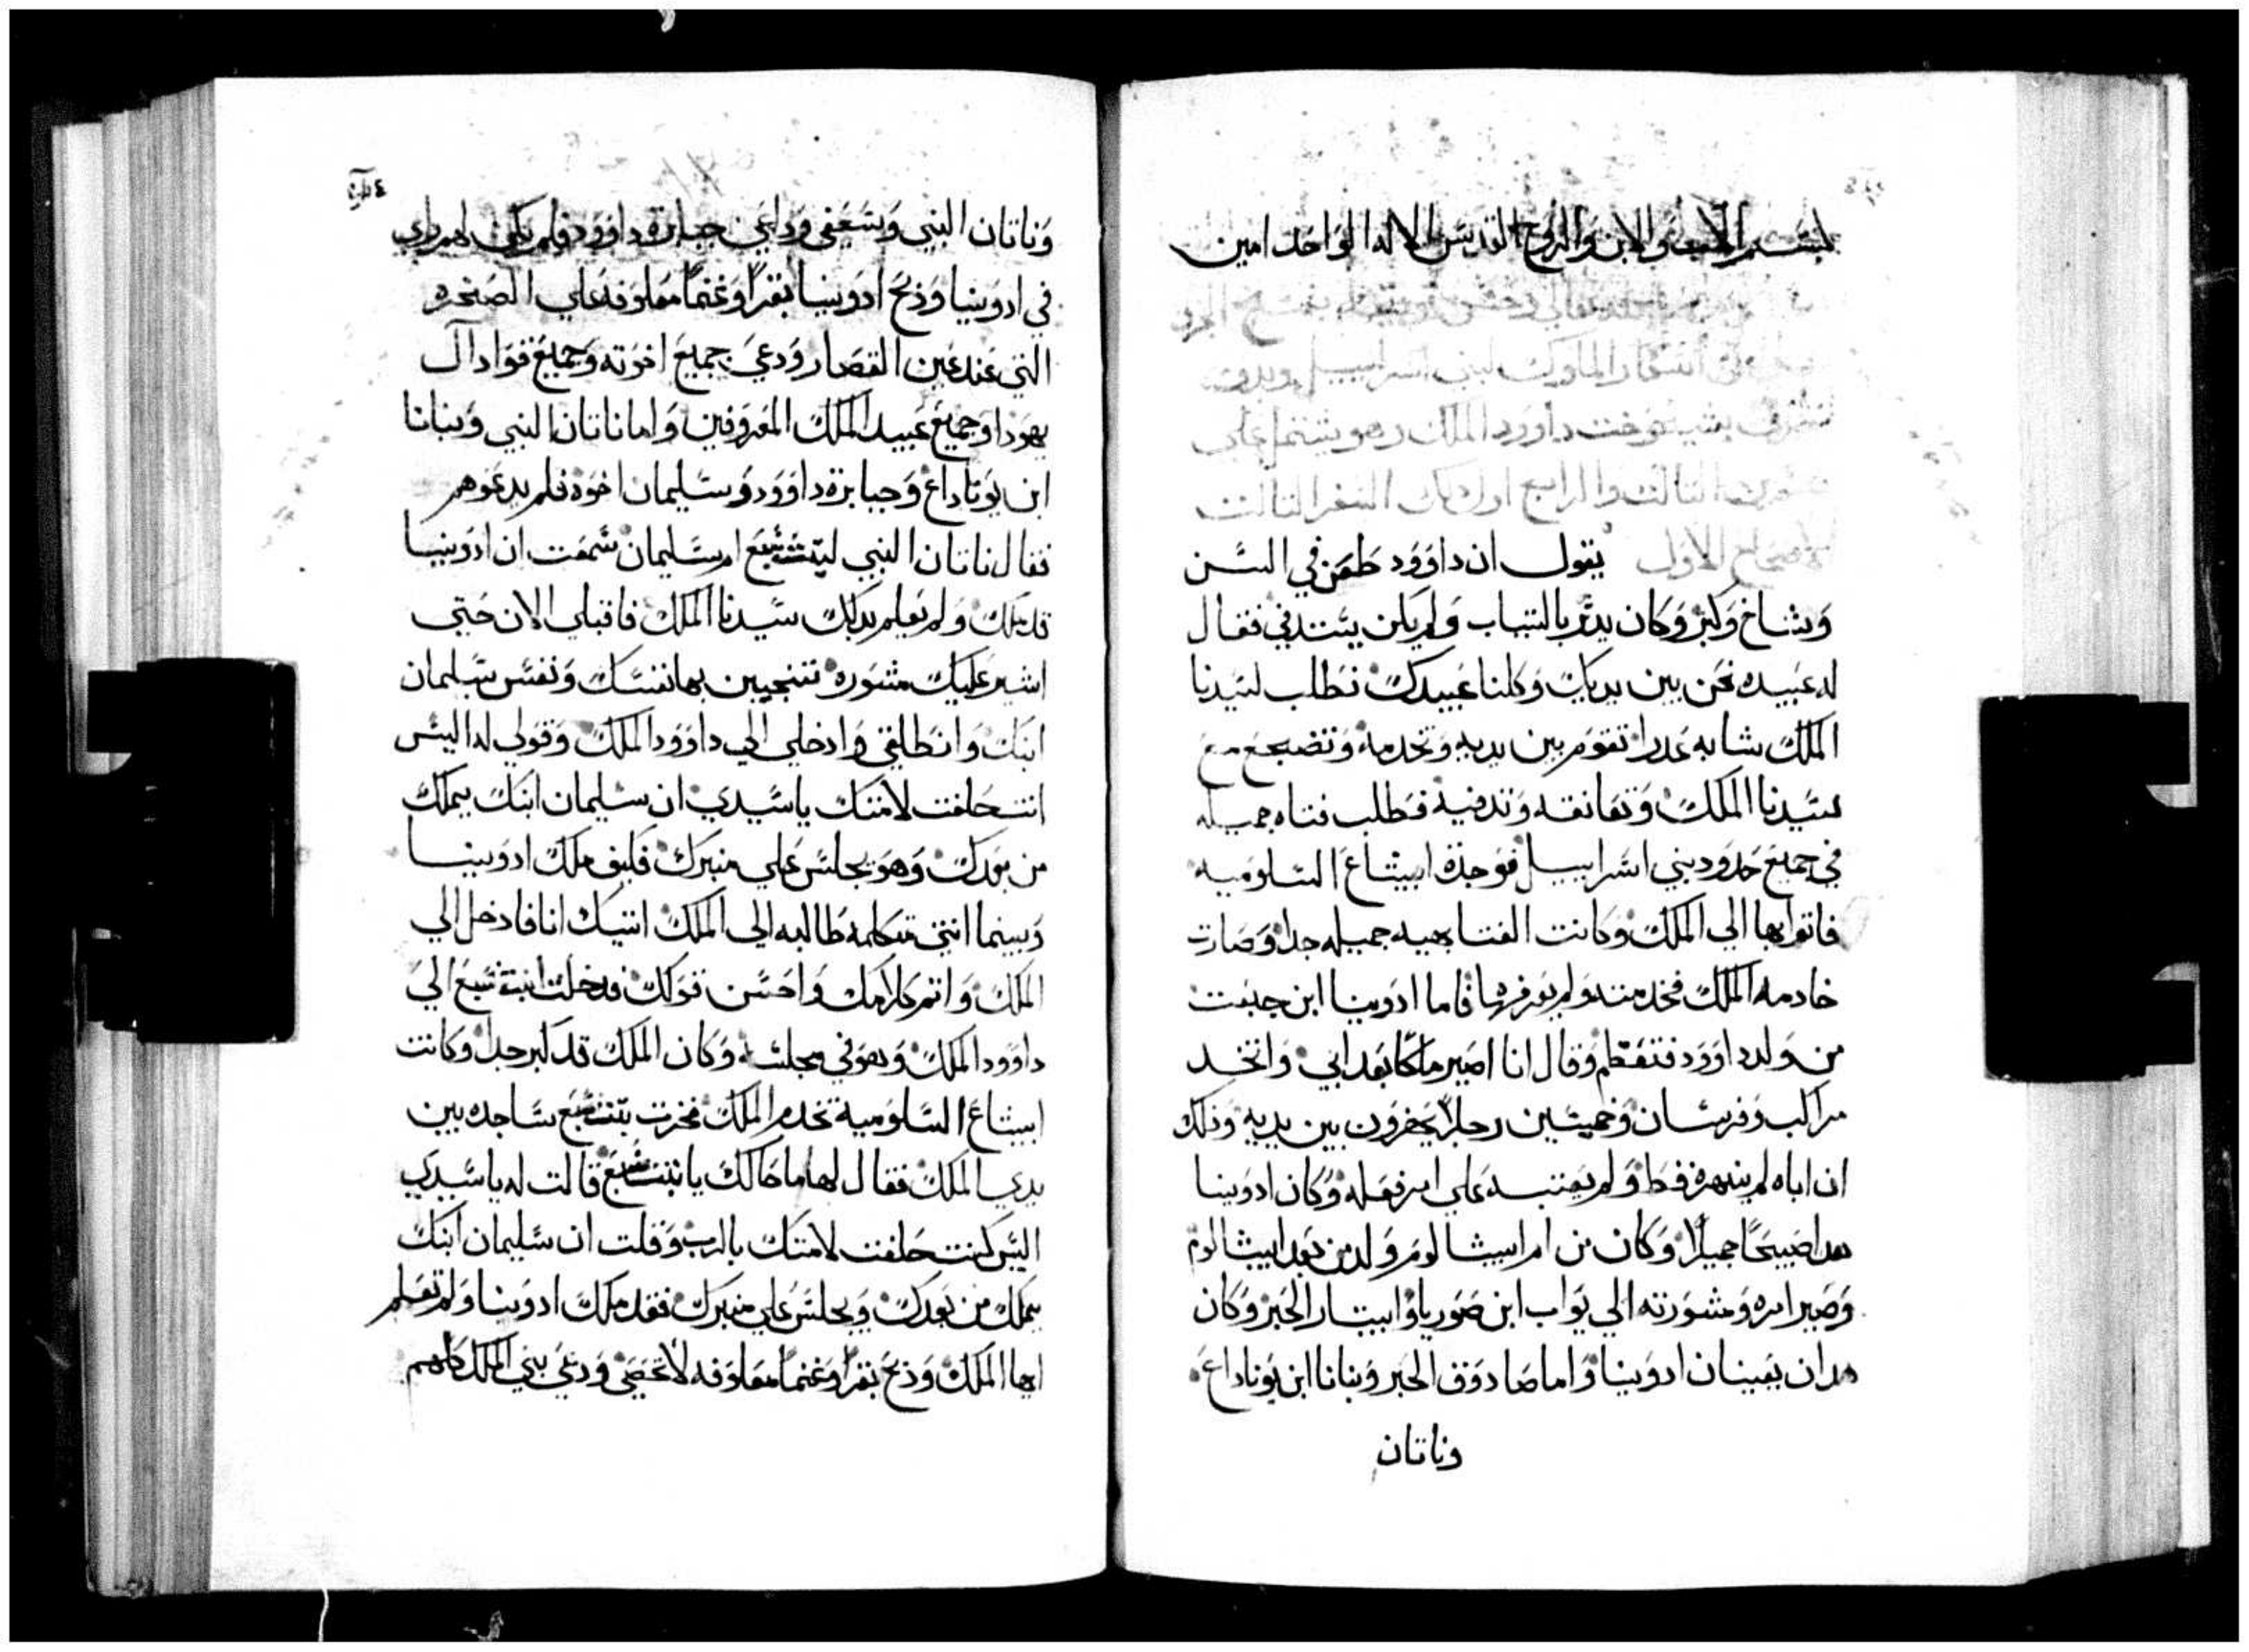 بسم الاب والابن والروح القدس الاله الواحد امين
اسفار الملوك لبني اسراييل
بشيخوخت داوود الملك وهو يشتمل علي
التالت والرابع اول دلك السفر التالت
الاصحاح الاول يقول ان داوود طعن في السن
وشاخ وكبر وكان يدتر بالتياب ولم يكن يستدفي فقال
له عبيده نحن بين يديك وكلنا عبيدك نطلب لسيدنا
الملك شابه عدرا تقوم بين يديه وتخدمه وتضجع مع
سيدنا الملك وتعانقه وتدفيه فطلب فتاه جميله
في جميع حدود بني اسراييل فوجدة ابيشاع السلوميه
فاتوا بها الي الملك وكانت الفتاه هيه جميله جدا وصارت
خادمه الملك فخدمته ولم يعرفها فاما ادونيا ابن جعيت
من ولد داوود فتعظم وقال انا اصير ملكا بعد ابي واتخد
مراكب وفرسان وخمسين رجلا يحفرون بين يديه ودلك
ان اباه لم ينهره قط ولم يعتبه علي امر فعله وكان ادونيا
هدا صبيحا جميلا وكان من ام ابيشالوم ولد من بعد ابيشالوم
وصير امره ومشورته الي يواب ابن صوريا وابيتار الحبر وكان
هدان يعينان ادونيا واما صادوق الحبر وبنانا ابن يوناداع
وناتان
٤
وناتان النبي وشعفي وراعي جبابرة داوود فلم يكن لهم راي
في ادونيا ودبح ادونيا بقرا وغنما معلوفه علي الصخره
التي عند عين القصار ودعي جميع اخوته وجميع قواد آل
يهودا وجميع عبيد الملك المعروفين واما ناتان النبي وبنانا
ابن يوناداع وجبابرة داوود وسليمان اخوة فلم يدعوهم
فقال ناتان النبي لبتشبع ام سليمان سمعت ان ادونيا
قد ملك ولم يعلم بدلك سيدنا الملك فاقبلي الان حتي
اشير عليك مشوره تنجين بها نفسك ونفس سليمان
ابنك وانطلقي وادخلي الي داوود الملك وقولي له اليس
انت حلفت لامتك يا سيدي ان سليمان ابنك يملك
من بعدك وهو يجلس علي منبرك فكيف ملك ادونيا
وبينما انتي متكلمه طالبه الي الملك اتيك انا فادخل الي
الملك واتم كلامك واحسن قولك فدخلت ابتشبع الي
داوود الملك وهو في مجلسه وكان الملك قد كبر جدا وكانت
ابيشاع السلومية تخدم الملك فخرت بتشبع ساجده بين
يدي الملك فقال لها ما حالك يا بتشبع قالت له يا سيدي
اليس كنت حلفت لامتك بالرب وقلت ان سليمان ابنك
يملك من بعدك ويجلس علي منبرك فقد ملك ادونيا ولم تعلم
ايها الملك ودبح بقرا وغنما معلوفه لا تحصي ودعي بني الملك كلهم